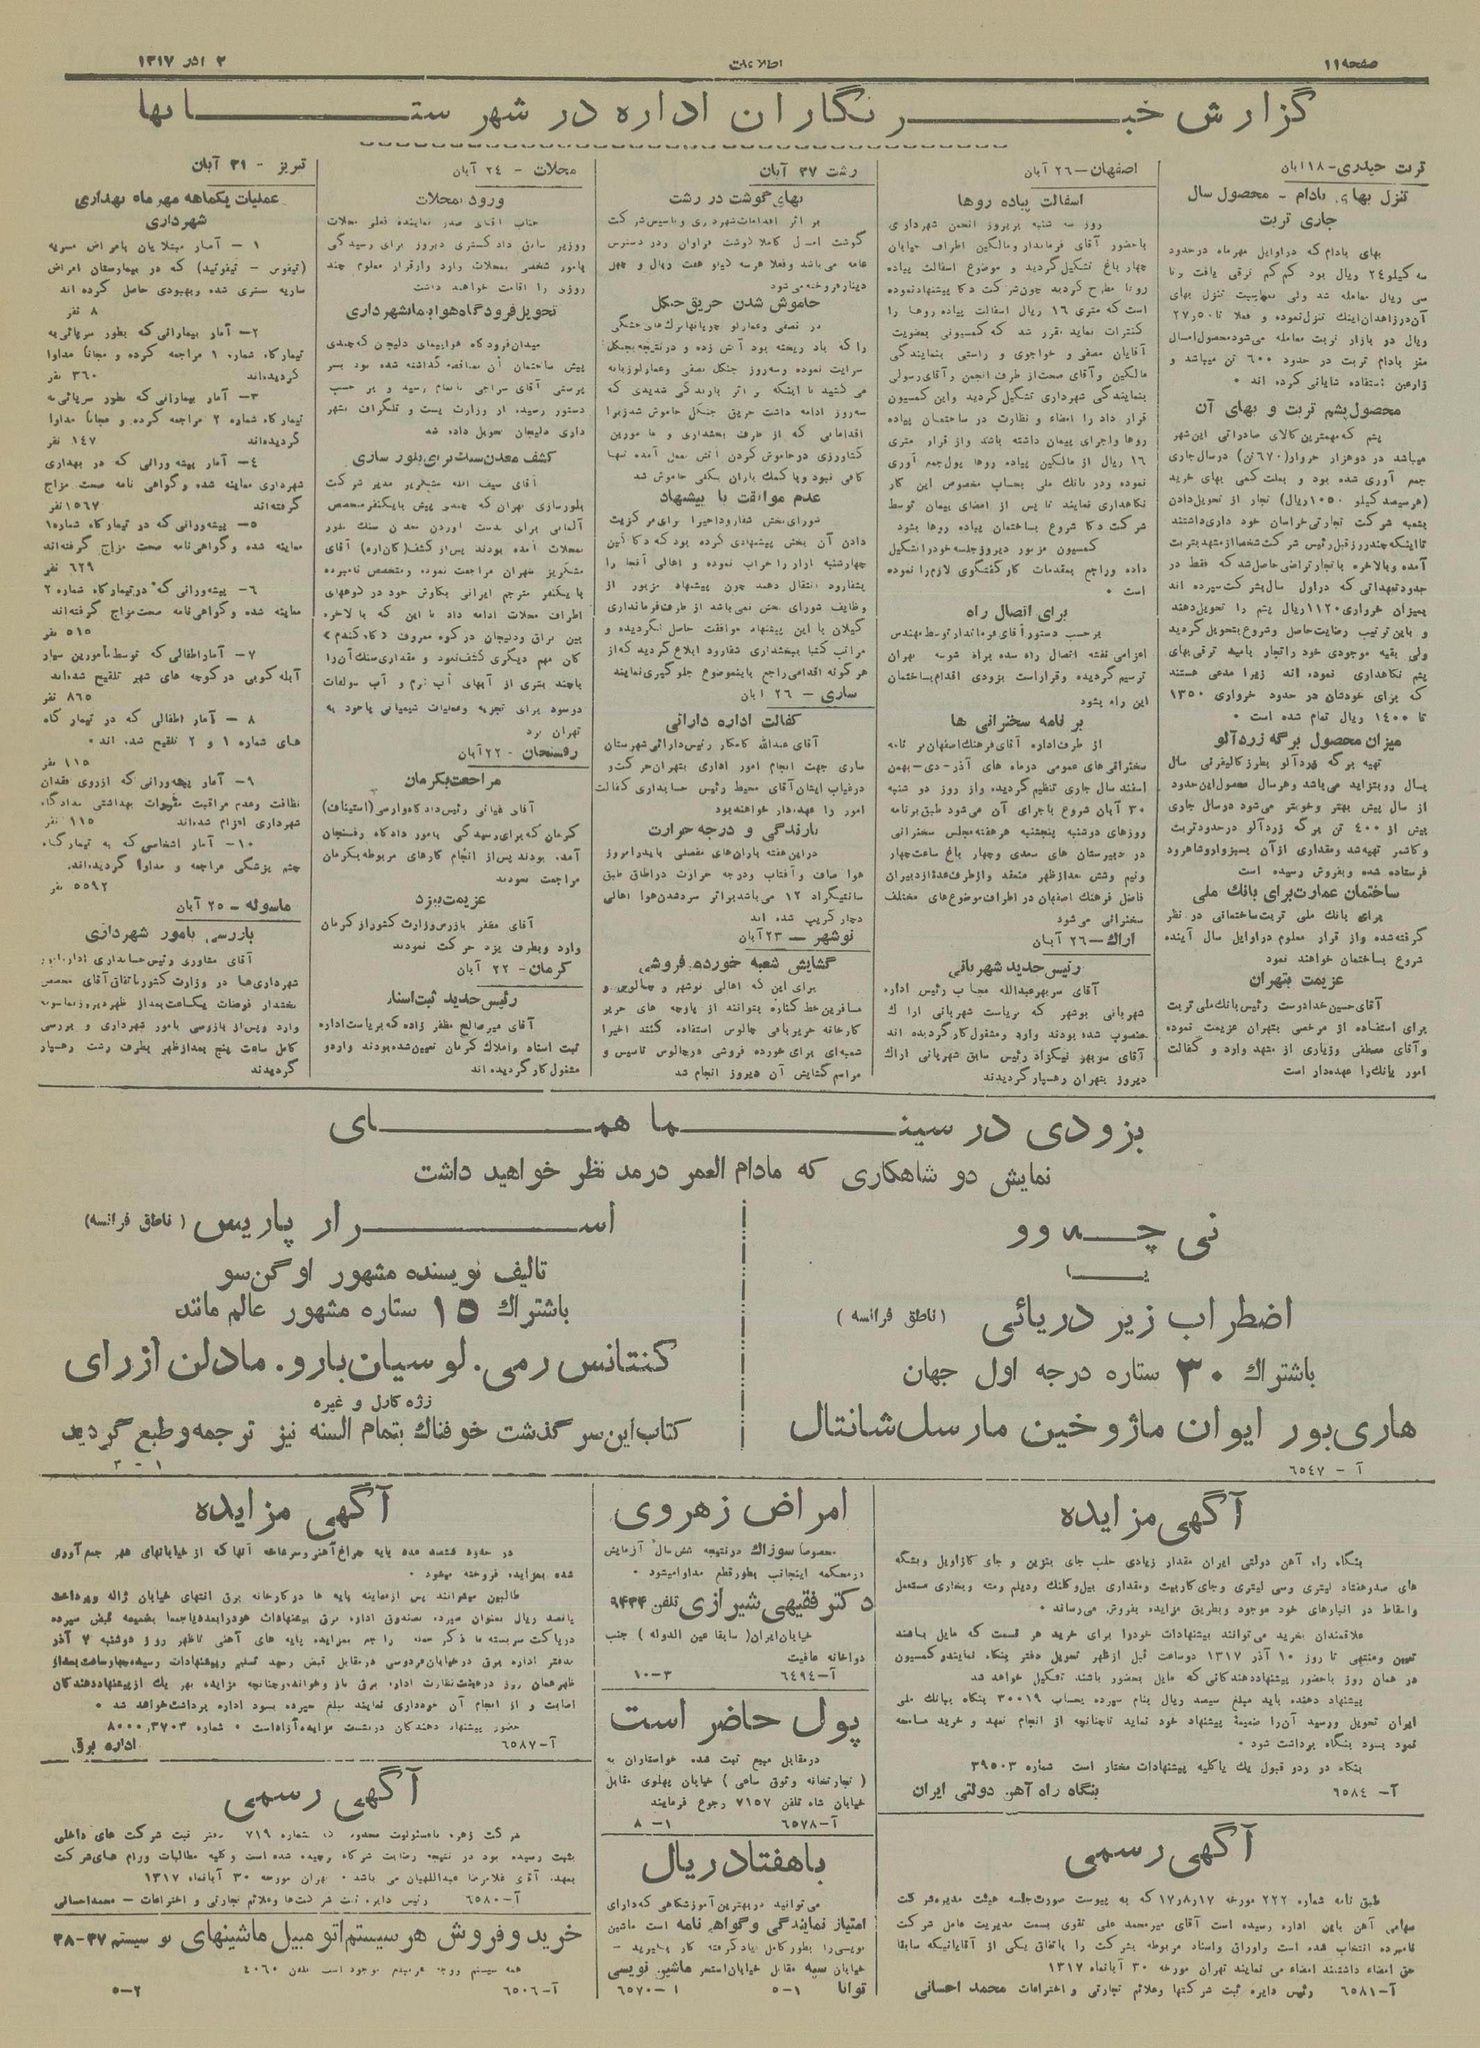 صفحه ۱۱
اطلاعات
۲ آذر ۱۳۱۷
گزارش خبرنگاران اداره در شهرستانها
تربت حیدری - ۱۸ آبان
تنزل بهای بادام - محصول سال
جاری تربت
بهای بادام که در اوایل مهرماه در حدود
سه کیلو ۲۴ ریال بود کم کم ترقی یافت و تا
سی ریال معامله شد ولی
آن در زاهدان اینک تنزل نموده و فعلا تا ۲۷٫۵۰
ریال در بازار تربت معامله می‌شود محصول امسال
مغز بادام تربت در حدود ۶۰۰ تن میباشد و
زارعین استفاده شایانی کرده اند .
محصول پشم تربت و بهای آن
پشم که مهمترین کالای صادراتی این شهر
میباشد در دوهزار خروار (۶۷۰ تن) در سال جاری
جمع آوری شده بود و بعلت کمی بهای خرید
(هر سیصد کیلو ۱۰۵۰ ریال) تجار از تحویل دادن
بشعبه شرکت تجارتی خراسان خود داری داشتند
تا اینکه چند روز قبل رئیس شرکت شخصا از مشهد بتربت
آمده و بالاخره با تجار تراضی حاصل شد که فقط در
حدود تعهداتی که در اول سال بشرکت سپرده اند
بمیزان خرواری ۱۱۲۰ ریال پشم را تحویل دهند
و باین ترتیب رضایت حاصل و شروع بتحویل گردید
ولی بقیه موجودی خود را تجار بامید ترقی بهای
پشم نگاهداری نموده اند زیرا مدعی هستند
که برای خودشان در حدود خرواری ۱۳۵۰
تا ۱۴۰۰ ریال تمام شده است .
میزان محصول برگه زردآلو
تهیه برگه زردآلو بطرز کالیفرنی سال
بسال رو بتزاید می‌باشد و هر سال محصول این حدود
از سال پیش بهتر و خوبتر می‌شود در سال جاری
بیش از ۴۰۰ تن برگه زردآلو در حدود تربت
و کاشمر تهیه شد و مقداری از آن بسبزوار و شاهرود
فرستاده شده و بفروش رسیده است
ساختمان عمارت برای بانک ملی
برای بانک ملی تربت ساختمانی در نظر
گرفته شده و از قرار معلوم در اوایل سال آینده
شروع بساختمان خواهند نمود
عزیمت بتهران
آقای حسین خدادوست رئیس بانک ملی تربت
برای استفاده از مرخصی بتهران عزیمت نموده
و آقای مصطفی وزیاری از مشهد وارد و کفالت
امور بانک را عهده‌دار است
اصفهان - ۲۶ آبان
اسفالت پیاده روها
روز سه شنبه پریروز انجمن شهرداری
با حضور آقای فرماندار و مالکین اطراف خیابان
چهار باغ تشکیل گردید و موضوع اسفالت پیاده
روها مطرح گردید چون شرکت دکا پیشنهاد نموده
است که متری ۱۶ ریال اسفالت پیاده روها را
کنترات نماید مقرر شد که کمسیونی بعضویت
آقایان مصفی و خواجوی و راستی بنمایندگی
مالکین و آقای صحت از طرف انجمن و آقای رسولی
بنمایندگی شهرداری تشکیل گردید و این کمسیون
قرار داد را امضاء و نظارت در ساختمان پیاده
روها و اجرای پیمان داشته باشد و از قرار متری
۱۶ ریال از مالکین پیاده روها پول جمع آوری
نموده و در بانک ملی بحساب مخصوص این کار
نگاهداری نمایند تا پس از امضای پیمان توسط
شرکت دکا شروع بساختمان پیاده روها بشود
کمسیون مزبور دیروز جلسه خود را تشکیل
داده و راجع بمقدمات کار گفتگوی لازم را نموده
است .
برای اتصال راه
بر حسب دستور آقای فرماندار توسط مهندس
اعزامی نقشه اتصال راه سده براه شوسه تهران
ترسیم گردیده و قرار است بزودی اقدام بساختمان
این راه بشود
برنامه سخنرانی ها
از طرف اداره آقای فرهنگ اصفهان برنامه
سخنرانی‌های عمومی در ماه های آذر-دی-بهمن
اسفند سال جاری تنظیم گردیده و از روز دو شنبه
۳۰ آبان شروع باجرای آن می‌شود طبق برنامه
روزهای دوشنبه پنجشنبه هر هفته مجلس سخنرانی
در دبیرستان های سعدی و چهار باغ ساعت چهار
ونیم وشش بعدازظهر منعقد و از طرف عده‌ای از دبیران
فاضل فرهنگ اصفهان در اطراف موضوع‌های مختلف
سخنرانی می‌شود
اراک - ۲۶ آبان
رئیس جدید شهربانی
آقای سربهر عبدالله مجاب رئیس اداره
شهربانی بوشهر که بریاست شهربانی اراک
منصوب شده بودند وارد و مشغول کار گردیده اند
آقای سربهر نیکزاد رئیس سابق شهربانی اراک
دیروز بتهران رهسپار گردیدند
رشت ۲۷ آبان
بهای گوشت در رشت
بر اثر اقدامات شهرداری و تاسیس شرکت
گوشت امسال کاملا گوشت فراوان و در دسترس
عامه می‌باشد و فعلا هر سه کیلو هفت ریال و چهل
دینار فروخته می‌شود
خاموش شدن حریق جنگل
سرایت نموده و سه روز جنگل
می کشید تا اینکه بر اثر بارندگی شدیدی که
سه روز ادامه داشت حریق جنگل خاموش شد زیرا
اقداماتی که از طرف بخشداری و مامورین
کشاورزی در خاموش کردن آتش بعمل آمده تنها
کافی نبود و با کمک باران بکلی خاموش شد
عدم موافقت با پیشنهاد
شورای بخش شفارود اخیرا برای مرکزیت
دادن آن بخش پیشنهادی کرده بود که دکاکین
چهارشنبه بازار را خراب نموده و اهالی آنجا را
بشفارود انتقال دهند چون پیشنهاد مزبور از
وظایف شورای بخش نمی‌باشد از طرف فرمانداری
گیلان با این پیشنهاد موافقت حاصل نگردیده و
مراتب کتبا ببخشداری شفارود ابلاغ گردید که از
هر گونه اقدامی راجع باینموضوع جلوگیری نمایند
ساری - ۲۶ آبان
کفالت اداره دارائی
آقای عبدالله کامکار رئیس دارائی شهرستان
ساری جهت انجام امور اداری بتهران حرکت و
در غیاب ایشان آقای محیط رئیس حسابداری کفالت
امور را عهده‌دار خواهند بود
بارندگی و درجه حرارت
در این هفته باران‌های مفصلی بارید امروز
هوا صاف و آفتاب و درجه حرارت در اطاق طبق
سانتیگراد ۱۲ می‌باشد بر اثر سرد شدن هوا اهالی
دچار گریپ شده اند
نوشهر - ۲۳ آبان
گشایش شعبه خورده فروشی
برای این که اهالی نوشهر و چالوس و
مسافرین خط کناره بتوانند از پارچه های حریر
کارخانه حریربافی چالوس استفاده کنند اخیرا
شعبه‌ای برای خورده فروشی در چالوس تاسیس و
مراسم گشایش آن دیروز انجام شد
محلات - ۲۴ آبان
ورود بمحلات
جناب آقای صدر نماینده فعلی محلات
و وزیر سابق دادگستری دیروز برای رسیدگی
بامور شخصی بمحلات وارد و از قرار معلوم چند
روزی را اقامت خواهند داشت
تحویل فرودگاه هواپیما بشهرداری
میدان فرودگاه هواپیمای دلیجان که چندی
پیش ساختمان آن بمناقصه گذاشته شده بود بسر
پرستی آقای سراجی باتمام رسید و بر حسب
دستور رسیده از وزارت پست و تلگراف بشهر
داری دلیجان تحویل داده شد
کشف معدن سنگ برای بلور سازی
آقای سیف الله مشکریز مدیر شرکت
بلورسازی تهران که چندی پیش با یکنفر متخصص
آلمانی برای بدست آوردن معدن سنگ بلور
بمحلات آمده بودند پس از کشف (کان‌اره) آقای
مشکریز بتهران مراجعت نموده و متخصص نامبرده
با یکنفر مترجم ایرانی بکاوش خود در کوههای
اطراف محلات ادامه داد تا این که بالاخره
بین نراق و دلیجان در کوه معروف «کاه کندم»
کان مهم دیگری کشف نمود و مقداری سنگ آن را
باچند بتری از آبهای آب گرم و آب سولفات
دوسود برای تجزیه و عملیات شیمیائی با خود به
تهران برد
رفسنجان - ۲۲ آبان
مراجعت بکرمان
آقای ضیائی رئیس دادگاه وارسی (استیناف)
کرمان که برای رسیدگی بامور دادگاه رفسنجان
آمده بودند پس از انجام کارهای مربوطه بکرمان
مراجعت نمودند
عزیمت یزد
آقای مظفر بازرس وزارت کشور از کرمان
وارد و بطرف یزد حرکت نمودند
کرمان - ۲۲ آبان
رئیس جدید ثبت اسناد
آقای میر صالح مظفر زاده که بریاست اداره
ثبت اسناد و املاک کرمان تعیین شده بودند وارد و
مشغول کار گردیده اند
تبریز - ۲۱ آبان
عملیات یکماهه مهر ماه بهداری
شهرداری
۱ - آمار مبتلایان بامراض مسریه
(تیفوس - تیفوئید) که در بیمارستان امراض
ساریه بستری شده و بهبودی حاصل کرده اند
۸ نفر
۲- آمار بیمارانی که بطور سرپائی به
تیمار گاه شماره ۱ مراجعه کرده و مجاناً مداوا
گردیده‌اند ۳۶۰ نفر
۳- آمار بیمارانی که بطور سرپائی به
تیمارگاه شماره ۲ مراجعه کرده و مجاناً مداوا
گردیده‌اند ۱۴۷ نفر
۴- آمار پیشه ورانی که در بهداری
شهرداری معاینه شده و گواهی نامه صحت مزاج
گرفته‌اند ۱۵۶۷ نفر
۵- پیشه‌ورانی که در تیمارگاه شماره ۱
معاینه شده و گواهی‌نامه صحت مزاج گرفته‌اند
۶۲۹ نفر
۶- پیشه‌ورانی که در تیمارگاه شماره ۲
معاینه شده و گواهی‌نامه صحت مزاج گرفته‌اند
۵۱۵ نفر
۷- آمار اطفالی که توسط مأمورین سیار
آبله کوبی در کوچه های شهر تلقیح شده‌اند
۸۶۵ نفر
۸ - آمار اطفالی که در تیمار گاه
های شماره ۱ و ۲ تلقیح شده‌اند .
۱۱۵ نفر
۹- آمار پیشه‌ورانی که از روی فقدان
نظافت و عدم مراقبت مقررات بهداشتی بدادگاه
شهرداری اعزام شده‌اند ۱۱۵ نفر
۱۰- آمار اشخاصی که به تیمارگاه
چشم پزشکی مراجعه و مداوا گردیده‌اند.
۵۵۹۲ نفر
ماسوله - ۲۵ آبان
بازرسی بامور شهرداری
آقای مشاوری رئیس حسابداری
شهرداری‌ها در وزارت کشور باتفاق آقای
بخشدار فومنات یکساعت بعد از ظهر دیروز بماسوله
وارد و پس از بازرسی بامور شهرداری و بررسی
کامل ساعت پنج بعدازظهر بطرف رشت رهسپار
گردیدند
بزودی در سینما همای
نمایش دو شاهکاری که مادام العمر در مد نظر خواهید داشت
نی چه‌وو
یا
اضطراب زیر دریائی (ناطق فرانسه)
باشتراک ۳۰ ستاره درجه اول جهان
هاری بور ایوان ماژوخین مارسل شانتال
آ - ۶۵۴۷
اسرار پاریس (ناطق فرانسه)
تالیف نویسنده مشهور اوگن سو
باشتراک ۱۵ ستاره مشهور عالم مانند
کنتانس رمی. لوسیان بارو. مادلن آزرای
زژه کارل و غیره
کتاب این سرگذشت خوفناک بتمام السنه نیز ترجمه و طبع گردید
۱ - ۲
آگهی مزایده
بنگاه راه آهن دولتی ایران مقدار زیادی حلب جای بنزین و جای گازاویل و بشکه
های صدر هفتاد لیتری و سی لیتری و جای کاربیت و مقداری بیل و کلنگ و دیلم و بخاری مستعمل
واسقاط در انبارهای خود موجود و بطریق مزایده بفروش می‌رساند .
علاقمندان بخرید می‌توانند پیشنهادات خود را برای خرید هر قسمت که مایل باشند
تعیین و منتهی تا روز ۱۰ آذر ۱۳۱۷ دو ساعت قبل از ظهر تحویل دفتر بنگاه نمایند و کمسیون
در همان روز با حضور پیشنهاد دهندگانی که مایل بحضور باشند تشکیل خواهد شد
پیشنهاد دهنده باید مبلغ سیصد ریال بنام سپرده بحساب ۳۰۰۱۹ بنگاه ببانک ملی
ایران تحویل و رسید آن را ضمیمهٔ پیشنهاد خود نماید تا چنانچه از انجام تعهد و خرید مسامحه
نمود بسود بنگاه برداشت شود .
بنگاه در رد و قبول یک یا کلیه پیشنهادات مختار است شماره ۳۹۵۰۳
آ- ۶۵۸۴ بنگاه راه آهن دولتی ایران
آگهی رسمی
طبق نامه شماره ۲۲۲ مورخه ۱۷ر۸ر۱۷ که به پیوست صورت جلسه هیئت مدیره شرکت
سهامی آهن باین اداره رسیده است آقای میرمحمد علی نقوی بسمت مدیریت عامل شرکت
نامبرده انتخاب شده است و اوراق و اسناد مربوطه بشرکت را باتفاق یکی از آقایانیکه سابقا
حق امضاء داشتند امضاء می نمایند تهران مورخه ۳۰ آبانماه ۱۳۱۷
آ- ۶۵۸۱ رئیس دایره ثبت شرکتها و علائم تجارتی و اختراعات محمد احسانی
امراض زهروی
مخصوصاً سوزاک در نتیجه شش سال آزمایش
در محکمه اینجانب بطور قطع مداوا میشود .
دکتر فقیهی شیرازی تلفن ۹۴۳۴
خیابان ایران (سابقا عین الدوله) جنب
دواخانه عافیت
آ-۶۴۹۴ ۳-۱۰
پول حاضر است
در مقابل مبیع ثبت شده خواستاران به
(تجارتخانه وثوق سامی) خیابان پهلوی مقابل
خیابان شاه تلفن ۷۱۵۷ رجوع فرمایند
آ-۶۵۷۸ ۱- ۸
با هفتاد ریال
می‌توانید در بهترین آموزشگاهی که دارای
امتیاز نمایندگی و گواهی نامه است ماشین
نویسی را بطور کامل یاد گرفته کار بگیرید -
خیابان سپه مقابل خیابان استخر ماشین نویسی
توانا ۱-۵ آ-۶۵۷۰
آگهی مزایده
در حدود هفتصد عدد پایه چراغ آهنی و سرشاخه آنها که از خیابانهای شهر جمع آوری
شده بمزایده فروخته میشود .
طالبین میتوانند پس از معاینه پایه ها در کارخانه برق انتهای خیابان ژاله و پرداخت
پانصد ریال بعنوان سپرده بصندوق اداره برق پیشنهادات خود را بعدد یا جمعا بضمیمه قبض سپرده
در پاکت سربسته با ذکر جمله راجع بمزایده پایه های آهنی تا ظهر روز دوشنبه ۷ آذر
بدفتر اداره برق در خیابان فردوسی در مقابل قبض رسید تسلیم و پیشنهادات رسیده چهار ساعت بعد از
ظهر همان روز در هیئت نظارت اداره برق باز و خوانده و چنانچه مزایده بهر یک از پیشنهاد دهندگان
اصابت و از انجام آن خودداری نمایند مبلغ سپرده بسود اداره برداشت خواهد شد .
حضور پیشنهاد دهندگان در نشست مزایده آزاد است . شماره ۸۰۰۰٫۳۷۰۳
آ-۶۵۸۷ اداره برق
آگهی رسمی
شرکت زهره با مسئولیت محدود که بشماره ۷۱۹ دفتر ثبت شرکت های داخلی
بثبت رسیده بود در نتیجه رضایت شرکاء برچیده شده است و کلیه مطالبات و وام های شرکت
بعهده آقای غلامرضا عبداللهیان می باشد . تهران مورخه ۳۰ آبانماه ۱۳۱۷
آ-۶۵۸۰ رئیس دایره ثبت شرکت‌ها و علائم تجارتی و اختراعات - محمد احسانی
خرید و فروش هر سیستم اتومبیل ماشینهای نو سیستم ۳۷-۳۸
همه سیستم موجود است تلفن ۴۰۶۰
آ-۶۵۰۶ ۲-۵